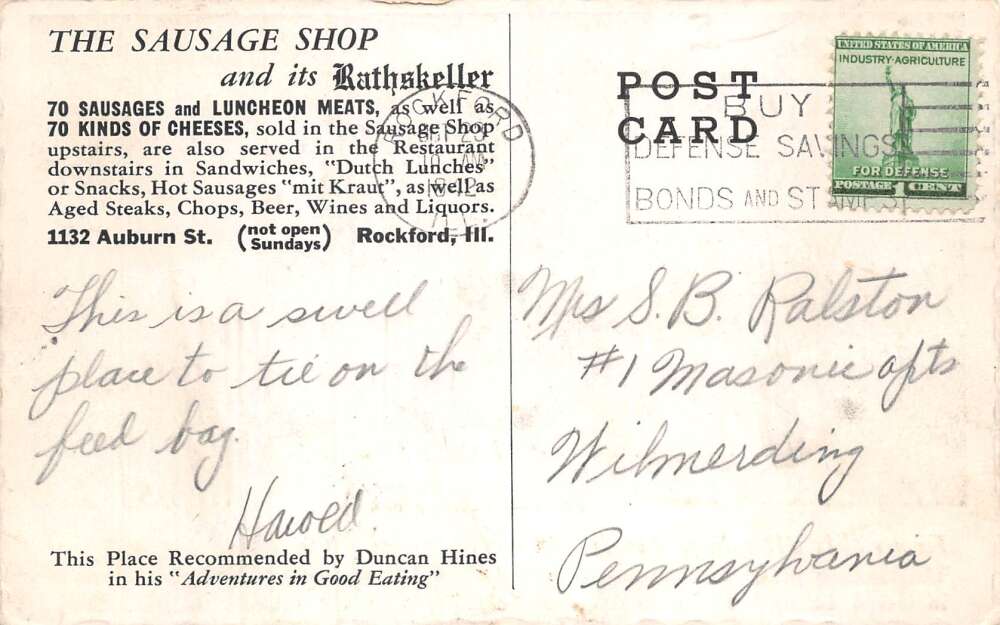 THE SAUSAGE SHOP
and its Rathskeller
70 SAUSAGES and LUNCHEON MEATS, as well as
70 KINDS OF CHEESES, sold in the Sausage Shop
upstairs, are also served in the Restaurant
downstairs in Sandwiches, "Dutch Lunches"
or Snacks, Hot Sausages "mit Kraut", as well as
Aged Steaks, Chops, Beer, Wines and Liquors.
1132 Auburn St. (not open Sundays) Rockford, Ill.
This is a swell
place to tie on the
feed bag.
Harold.
This Place Recommended by Duncan Hines
in his "Adventures in Good Eating"
POST
CARD
ROCKFORD
10 AM
1942
ILL.
BUY
DEFENSE SAVINGS
BONDS AND STAMPS
UNITED STATES OF AMERICA
INDUSTRY·AGRICULTURE
FOR DEFENSE
POSTAGE 1 CENT
Mrs S. B. Ralston
#1 Masonic apts
Wilmerding
Pennsylvania